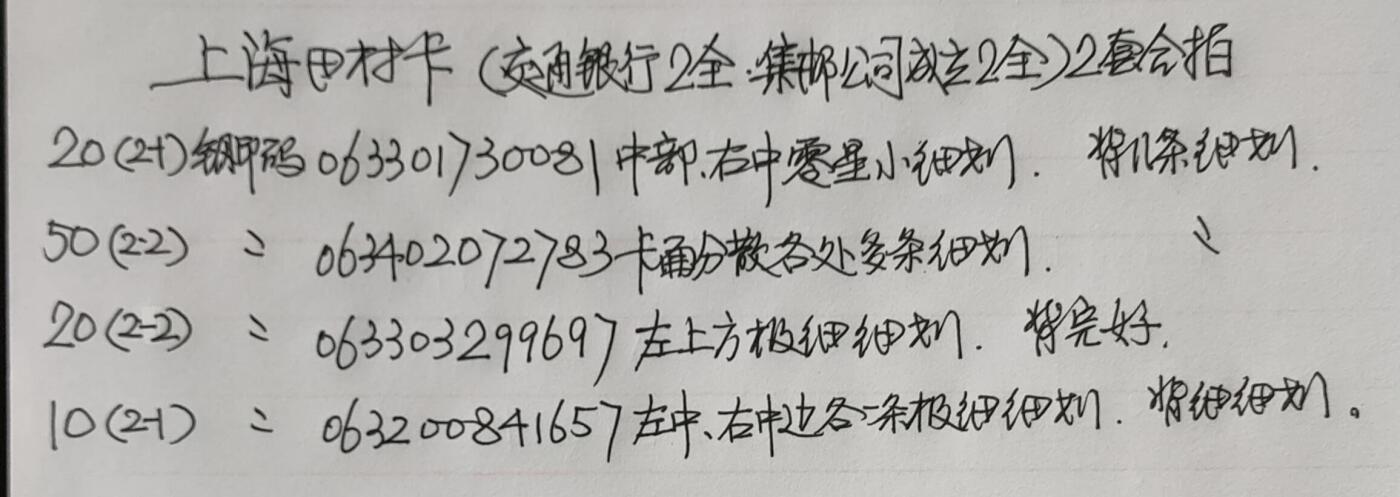 上海田村卡(交通银行2全.集邮公司成立2全)2套合拍
20(2-1)钢印码063301730081中部、右中零星小细划. 背几条细划.
50(2-2) 〃 063402072783卡面分散各处多条细划. 〃
20(2-2) 〃 063303299697左上方极细细划. 背完好.
10(2-1) 〃 063200841657左中、右中边各一条极细细划. 背细细划。